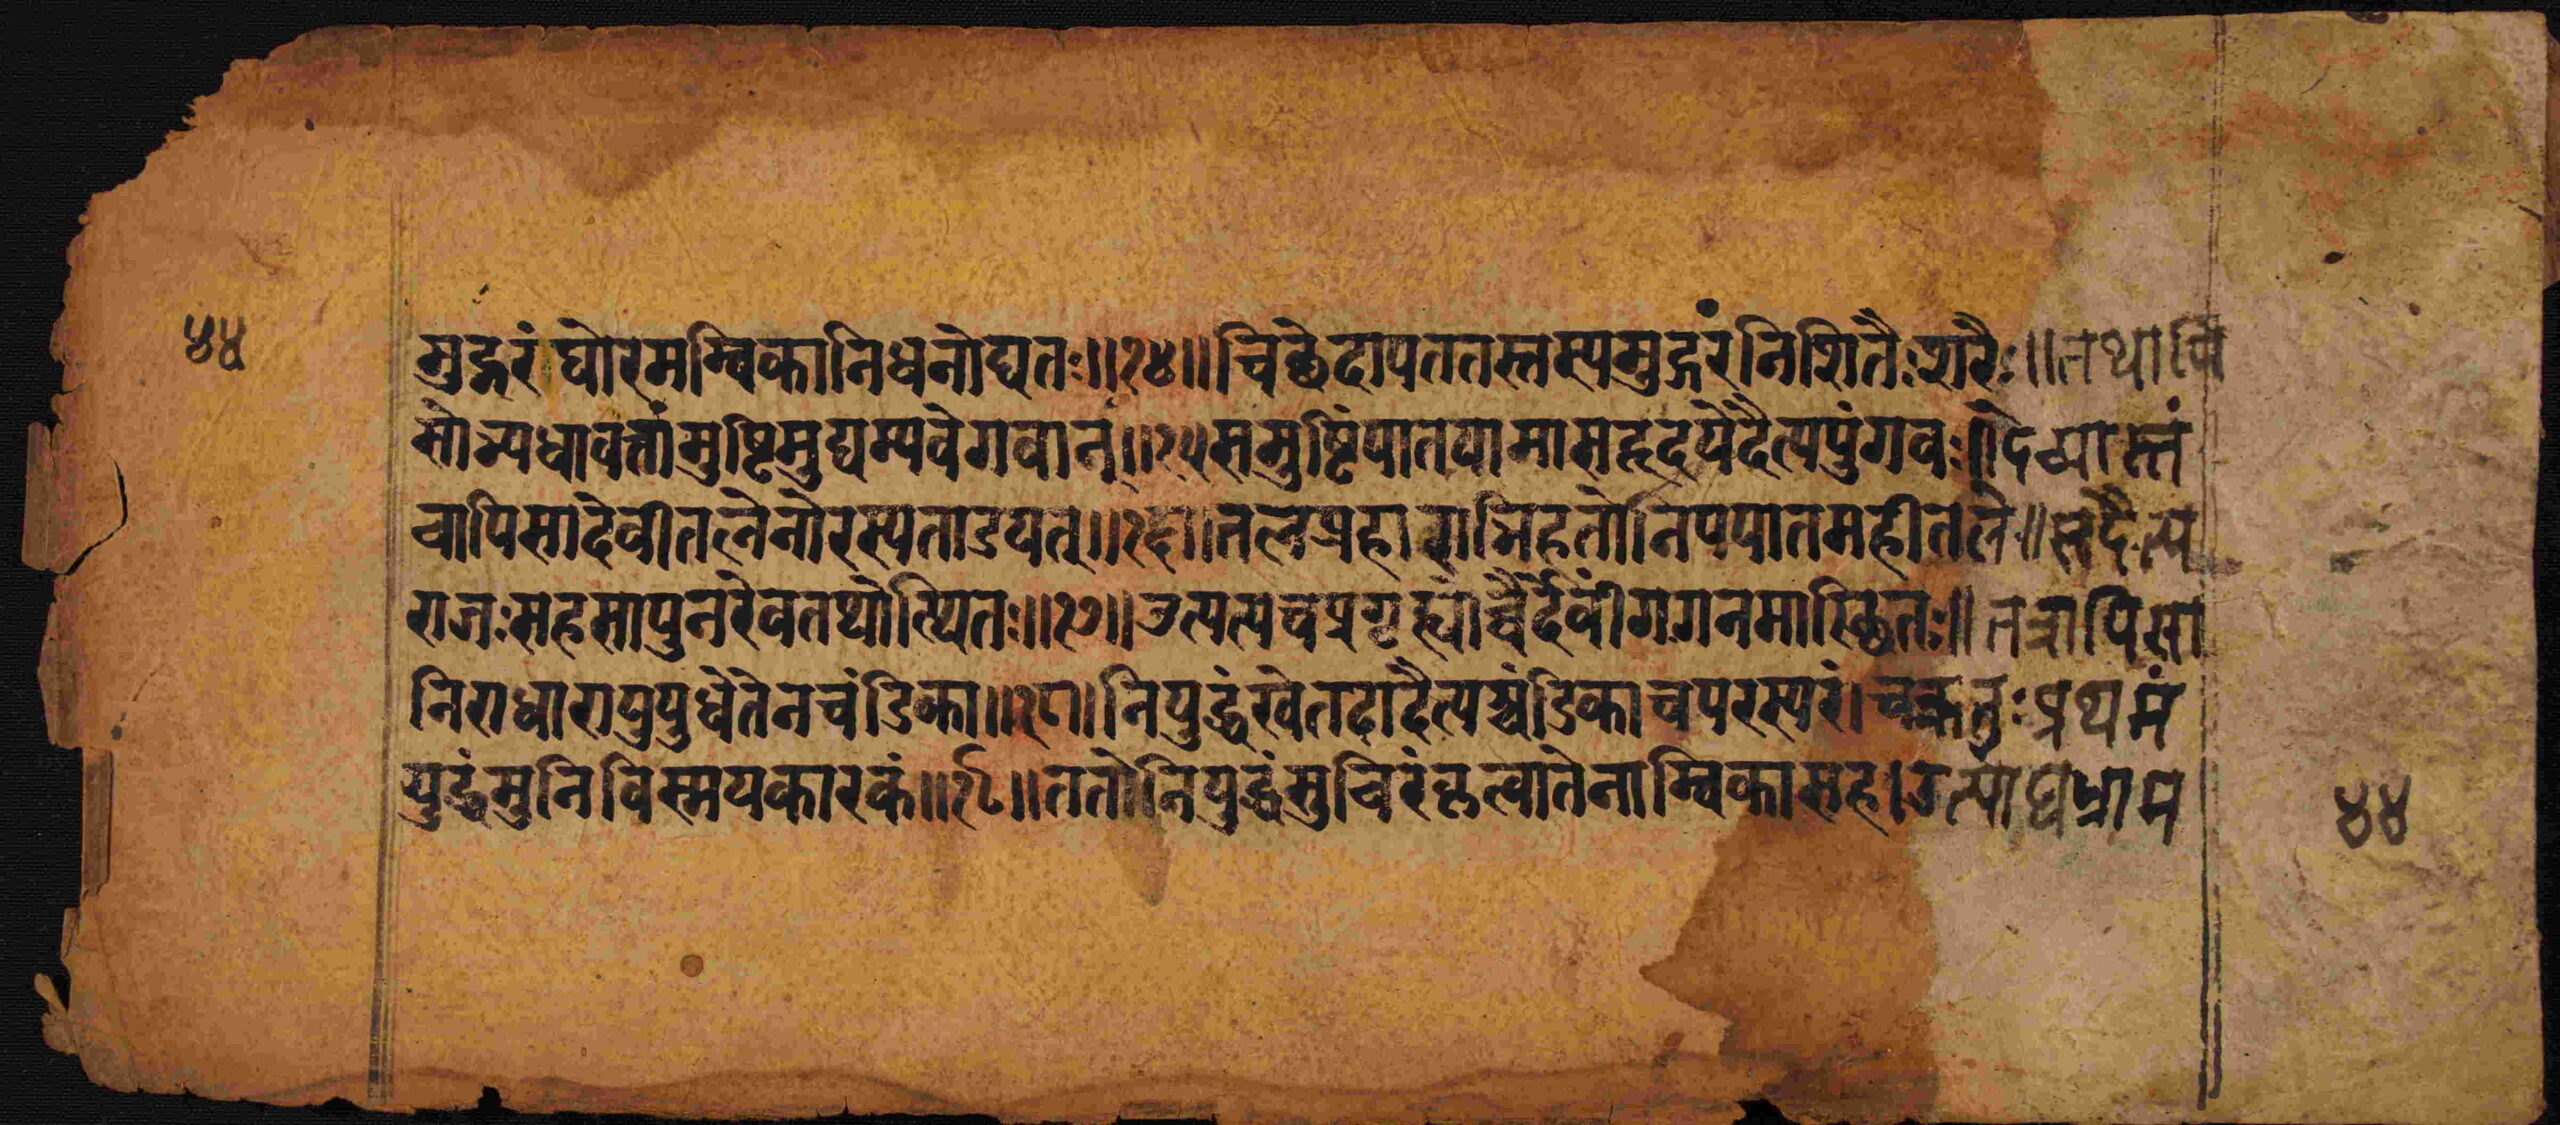 ४४
मुद्गरं घोरमम्बिकानिधनोद्यतः॥१४॥चिछेदापततस्तस्यमुद्गरंनिशितैःशरैः॥तथापि
सोभ्यधावत्तांमुष्टिमुद्यम्यवेगवान्॥१५समुष्टिंपातयामासहृदयेदैत्यपुंगवः॥देव्यास्तं
चापिसादेवीतलेनोरस्यताडयत्॥१६॥तलप्रहाराभिहतोनिपपातमहीतले॥सदैत्य
राजःसहसापुनरेवतथोत्थितः॥१७॥उत्पत्यचप्रगृह्योच्चैर्देवींगगनमास्थितः॥तत्रापिसा
निराधारायुयुधेतेनचंडिका॥१८॥नियुद्धंखेतदादैत्यश्चंडिकाचपरस्परं।चक्रतुःप्रथमं
युद्धंमुनिविस्मयकारकं॥१९॥ततोनियुद्धंसुचिरंकृत्वातेनाम्बिकासह।उत्पाद्यभ्राम
४४